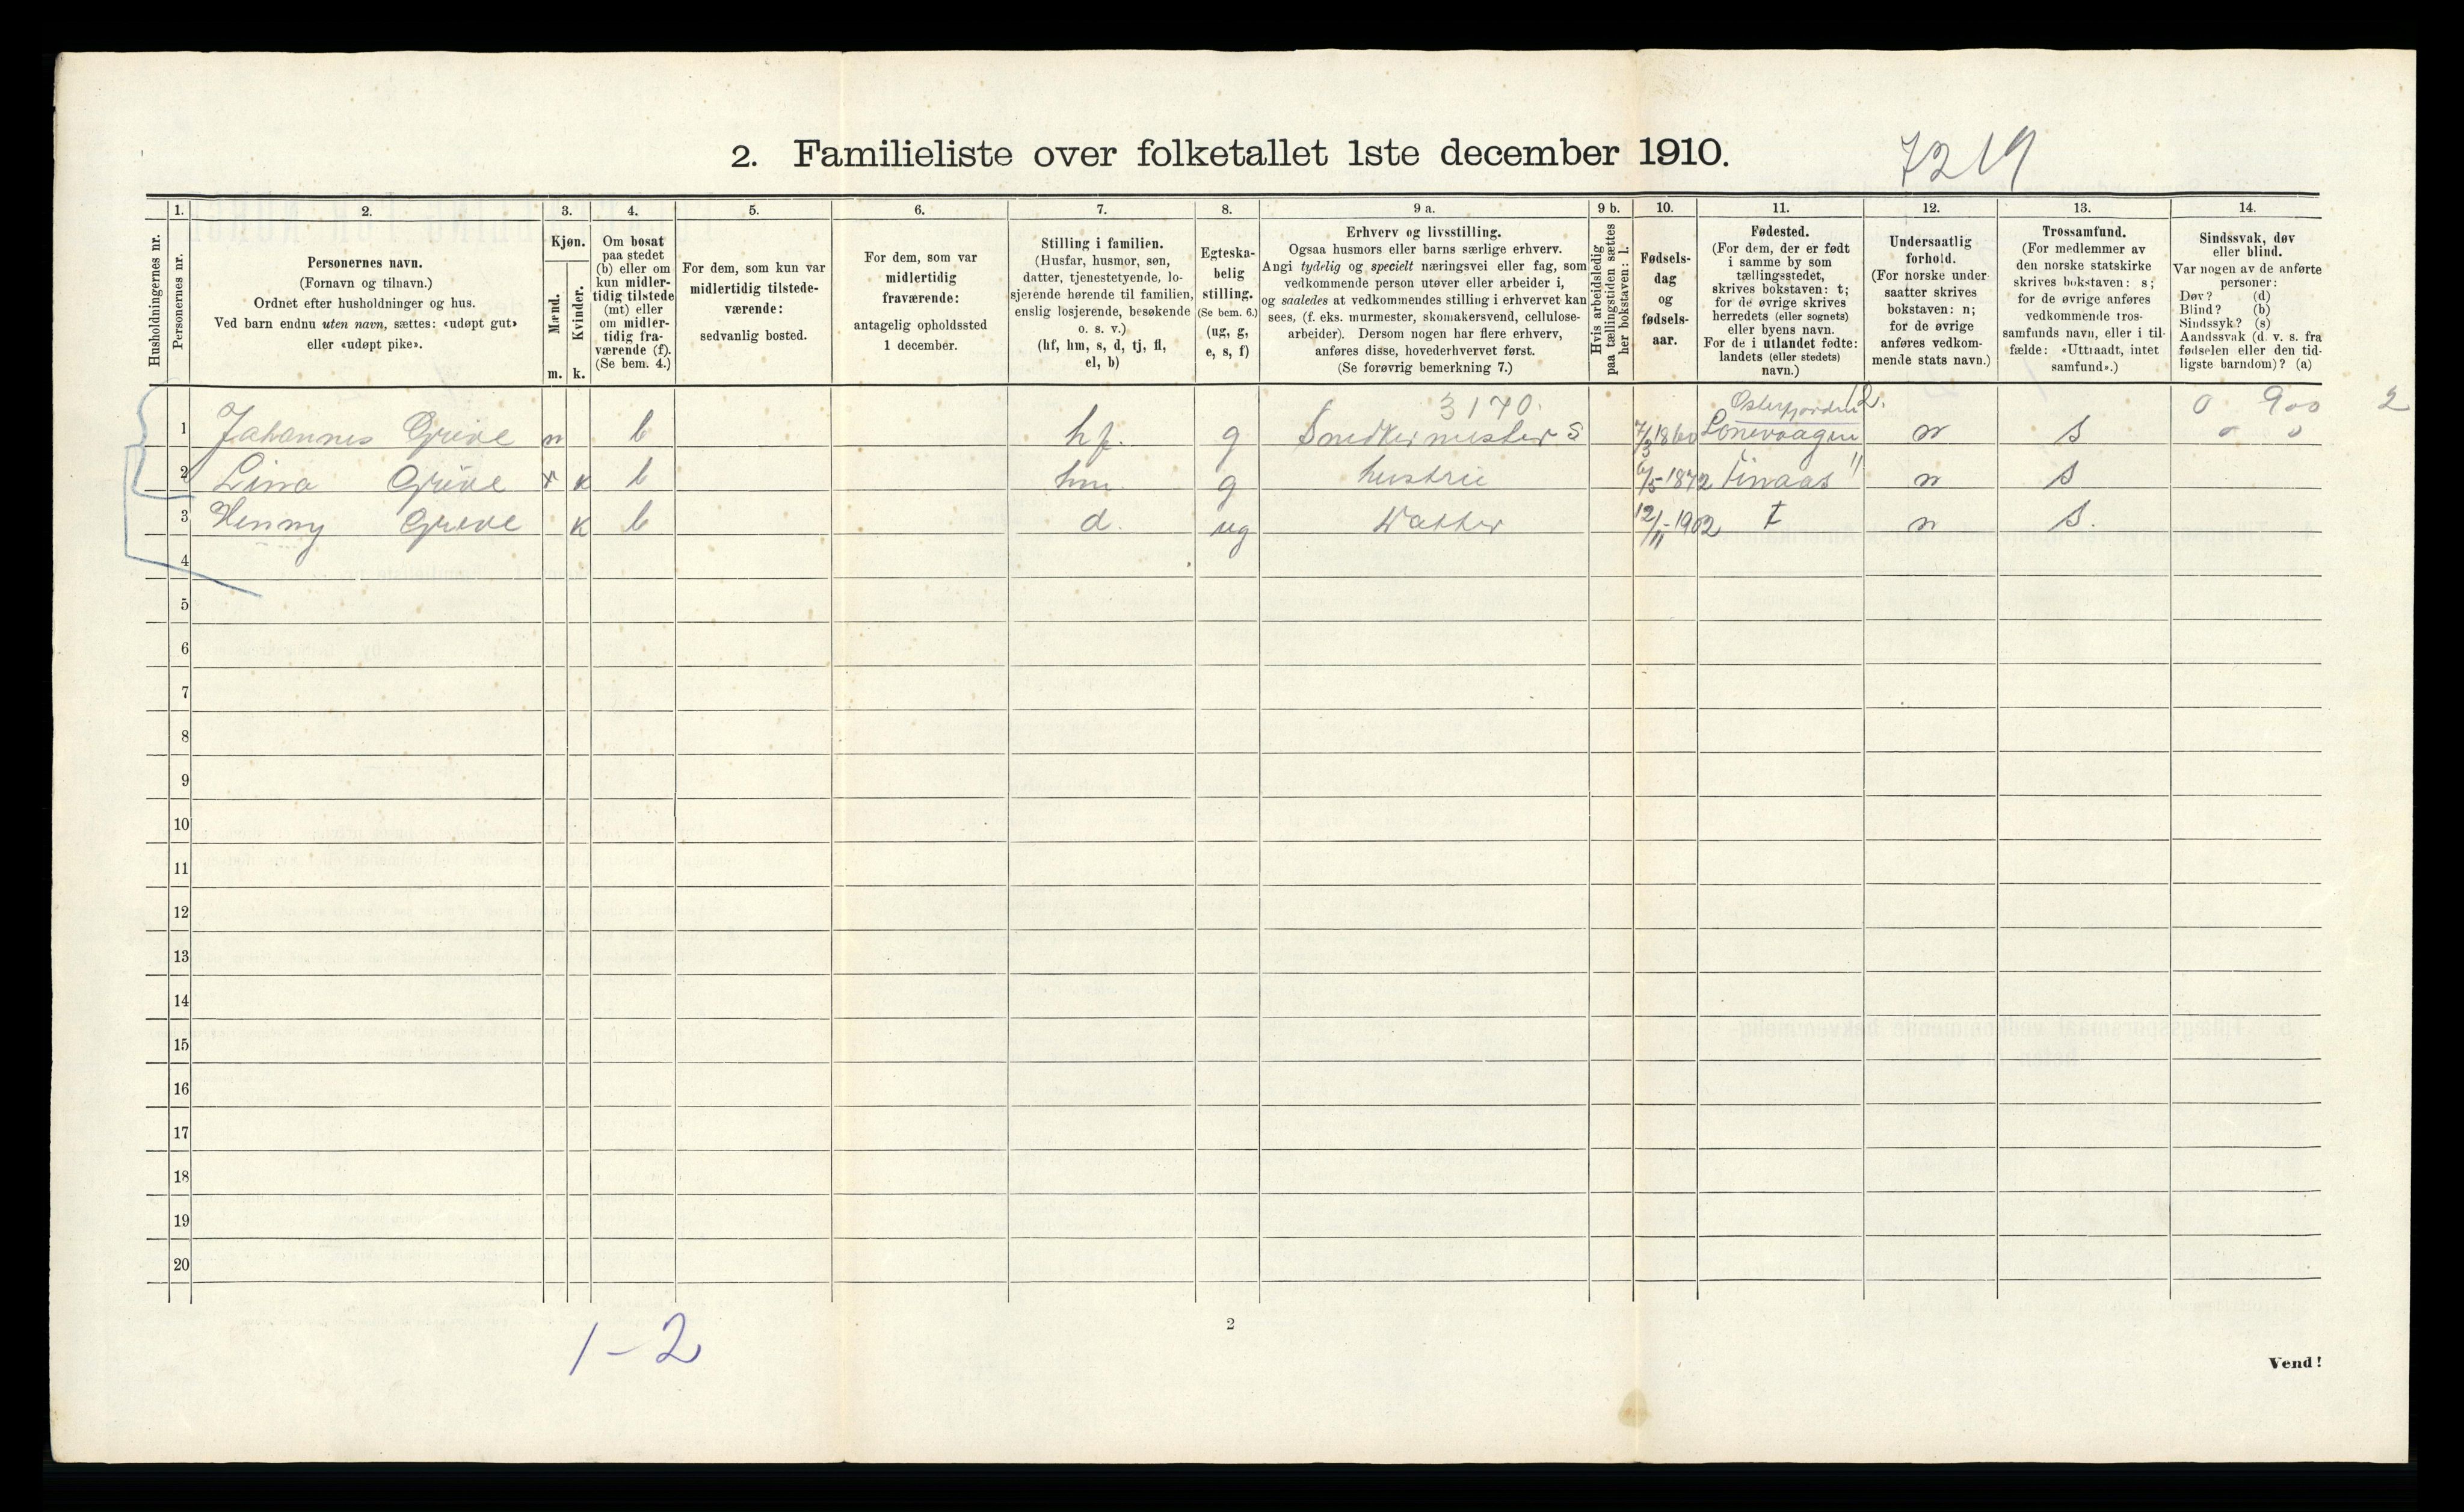 2. Familieliste over folketallet 1ste december 1910.
7219
1. 2. 3. 4. 5. 6. 7. 8. 9 a. 9 b. 10. 11. 12. 13. 14.
Husholdningernes nr.
Personernes nr.
Personernes navn.
(Fornavn og tilnavn.)
Ordnet efter husholdninger og hus.
Ved barn endnu uten navn, sættes: «udøpt gut»
eller «udøpt pike».
Kjøn.
Mænd.
m.
Kvinder.
k.
Om bosat
paa stedet
(b) eller om
kun midler-
tidig tilstede
(mt) eller
om midler-
tidig fra-
værende (f).
(Se bem. 4.)
For dem, som kun var
midlertidig tilstede-
værende:
sedvanlig bosted.
For dem, som var
midlertidig
fraværende:
antagelig opholdssted
1 december.
Stilling i familien.
(Husfar, husmor, søn,
datter, tjenestetyende, lo-
sjerende hørende til familien,
enslig losjerende, besøkende
o. s. v.)
(hf, hm, s, d, tj, fl,
el, b)
Egteska-
belig
stilling.
(Se bem. 6.)
(ug, g,
e, s, f)
Erhverv og livsstilling.
Ogsaa husmors eller barns særlige erhverv.
Angi tydelig og specielt næringsvei eller fag, som
vedkommende person utøver eller arbeider i,
og saaledes at vedkommendes stilling i erhvervet kan
sees, (f. eks. murmester, skomakersvend, cellulose-
arbeider). Dersom nogen har flere erhverv,
anføres disse, hovederhvervet først.
(Se forøvrig bemerkning 7.)
Hvis arbeidsledig
paa tællingstiden sættes
her bokstaven: l.
Fødsels-
dag
og
fødsels-
aar.
Fødested.
(For dem, der er født
i samme by som
tællingsstedet,
skrives bokstaven: t;
for de øvrige skrives
herredets (eller sognets)
eller byens navn.
For de i utlandet fødte:
landets (eller stedets)
navn.)
Undersaatlig
forhold.
(For norske under-
saatter skrives
bokstaven: n;
for de øvrige
anføres vedkom-
mende stats navn.)
Trossamfund.
(For medlemmer av
den norske statskirke
skrives bokstaven: s;
for de øvrige anføres
vedkommende tros-
samfunds navn, eller i til-
fælde: «Uttraadt, intet
samfund».)
Sindssvak, døv
eller blind.
Var nogen av de anførte
personer:
Døv? (d)
Blind? (b)
Sindssyk? (s)
Aandssvak (d. v. s. fra
fødselen eller den tid-
ligste barndom)? (a)
3170. Osterfjorden 12. 0 900 2
1 Johannes Greve m b hf. g Snedkermester S 7/3 1860 Lonevaagen n s 0 0
2 Lina Greve k b hm g hustru 6/5-1872 n s
3 Henny Greve k b d. ug Datter 12/11-1902 t n s.
4
5
6
7
8
9
10
11
12
13
14
15
16
17
18
19
20
1-2
2
Vend!